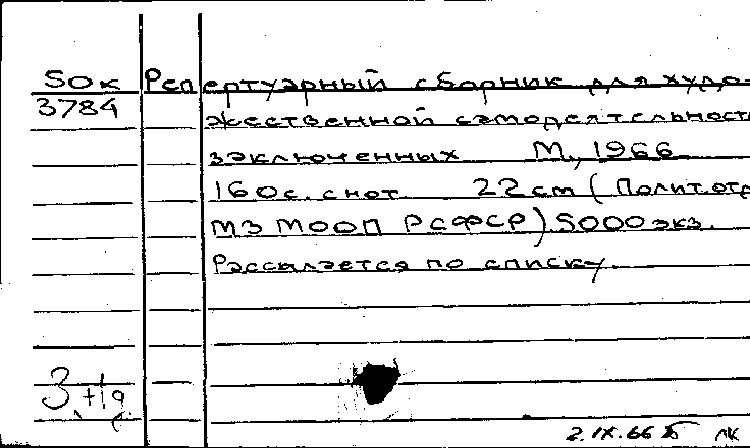 50к Репертуарный сборник для худо-
3784 жественной самодеятельност
заключенных М., 1966
160с. с нот. 22 cm (Полит.отд
МЗ МООП РСФСР) 5000 экз.
Рассылается по списку.
2.IX.66